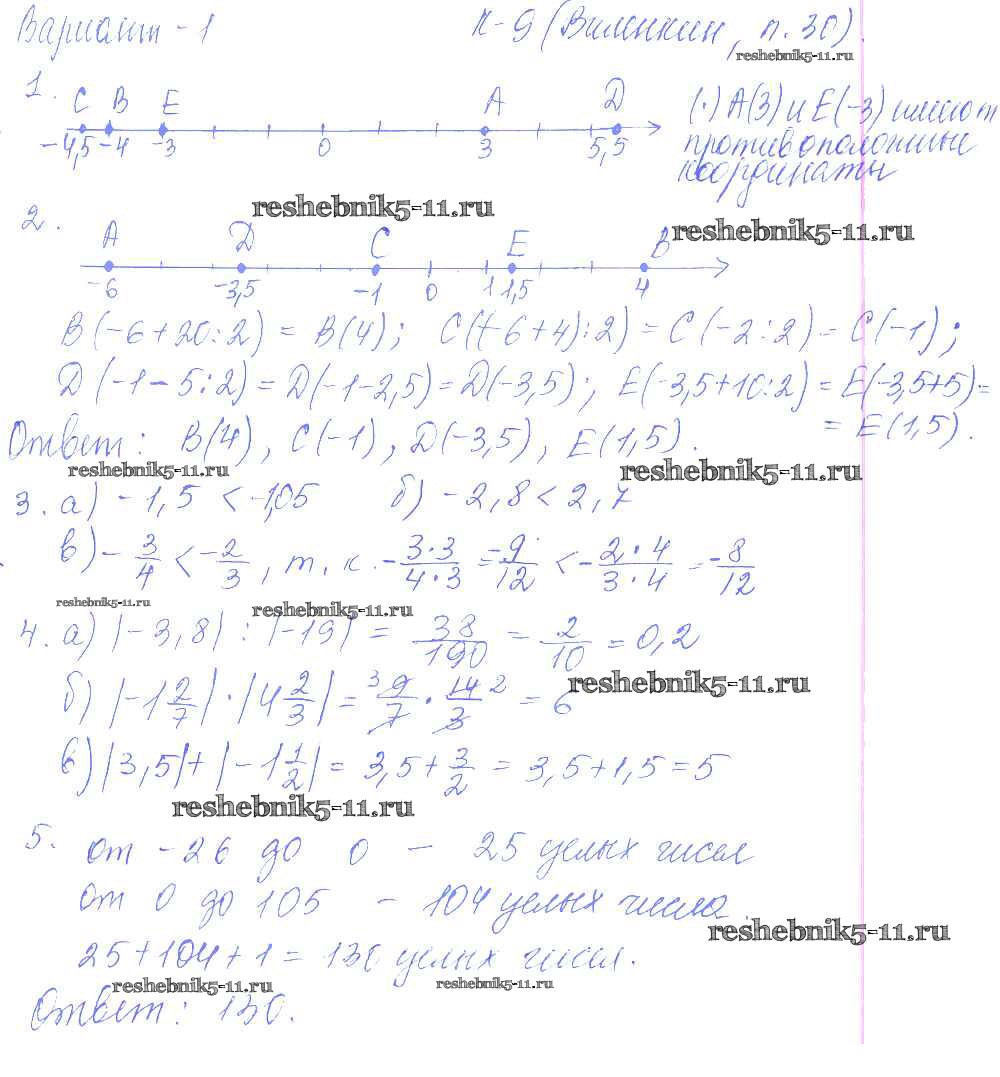 Вариант - 1 К-9 (Виленкин, п. 30).
reshebnik5-11.ru
1. C B E A D
-4,5 -4 -3 0 3 5,5
(·) A(3) и E(-3) имеют
противоположные
координаты
reshebnik5-11.ru
2. A D C E B
reshebnik5-11.ru
-6 -3,5 -1 0 1 1,5 4
B(-6+20:2) = B(4); C((-6+4):2) = C(-2:2) = C(-1);
D(-1-5:2) = D(-1-2,5) = D(-3,5); E(-3,5+10:2) = E(-3,5+5) =
= E(1,5).
Ответ: B(4), C(-1), D(-3,5), E(1,5).
reshebnik5-11.ru reshebnik5-11.ru
3. а) -1,5 < -1,05 б) -2,8 < 2,7
в) -3/4 < -2/3, т.к. -3·3/4·3 = -9/12 < -2·4/3·4 = -8/12
reshebnik5-11.ru reshebnik5-11.ru
4. а) |-3,8| : |-19| = 38/190 = 2/10 = 0,2
reshebnik5-11.ru
б) |-1 2/7| · |4 2/3| = 3 9/7 · 14/3 2 = 6
в) |3,5| + |-1 1/2| = 3,5 + 3/2 = 3,5 + 1,5 = 5
reshebnik5-11.ru
5. от -26 до 0 - 25 целых чисел
от 0 до 105 - 104 целых числа
reshebnik5-11.ru
25+104+1 = 130 целых чисел.
reshebnik5-11.ru reshebnik5-11.ru
Ответ: 130.